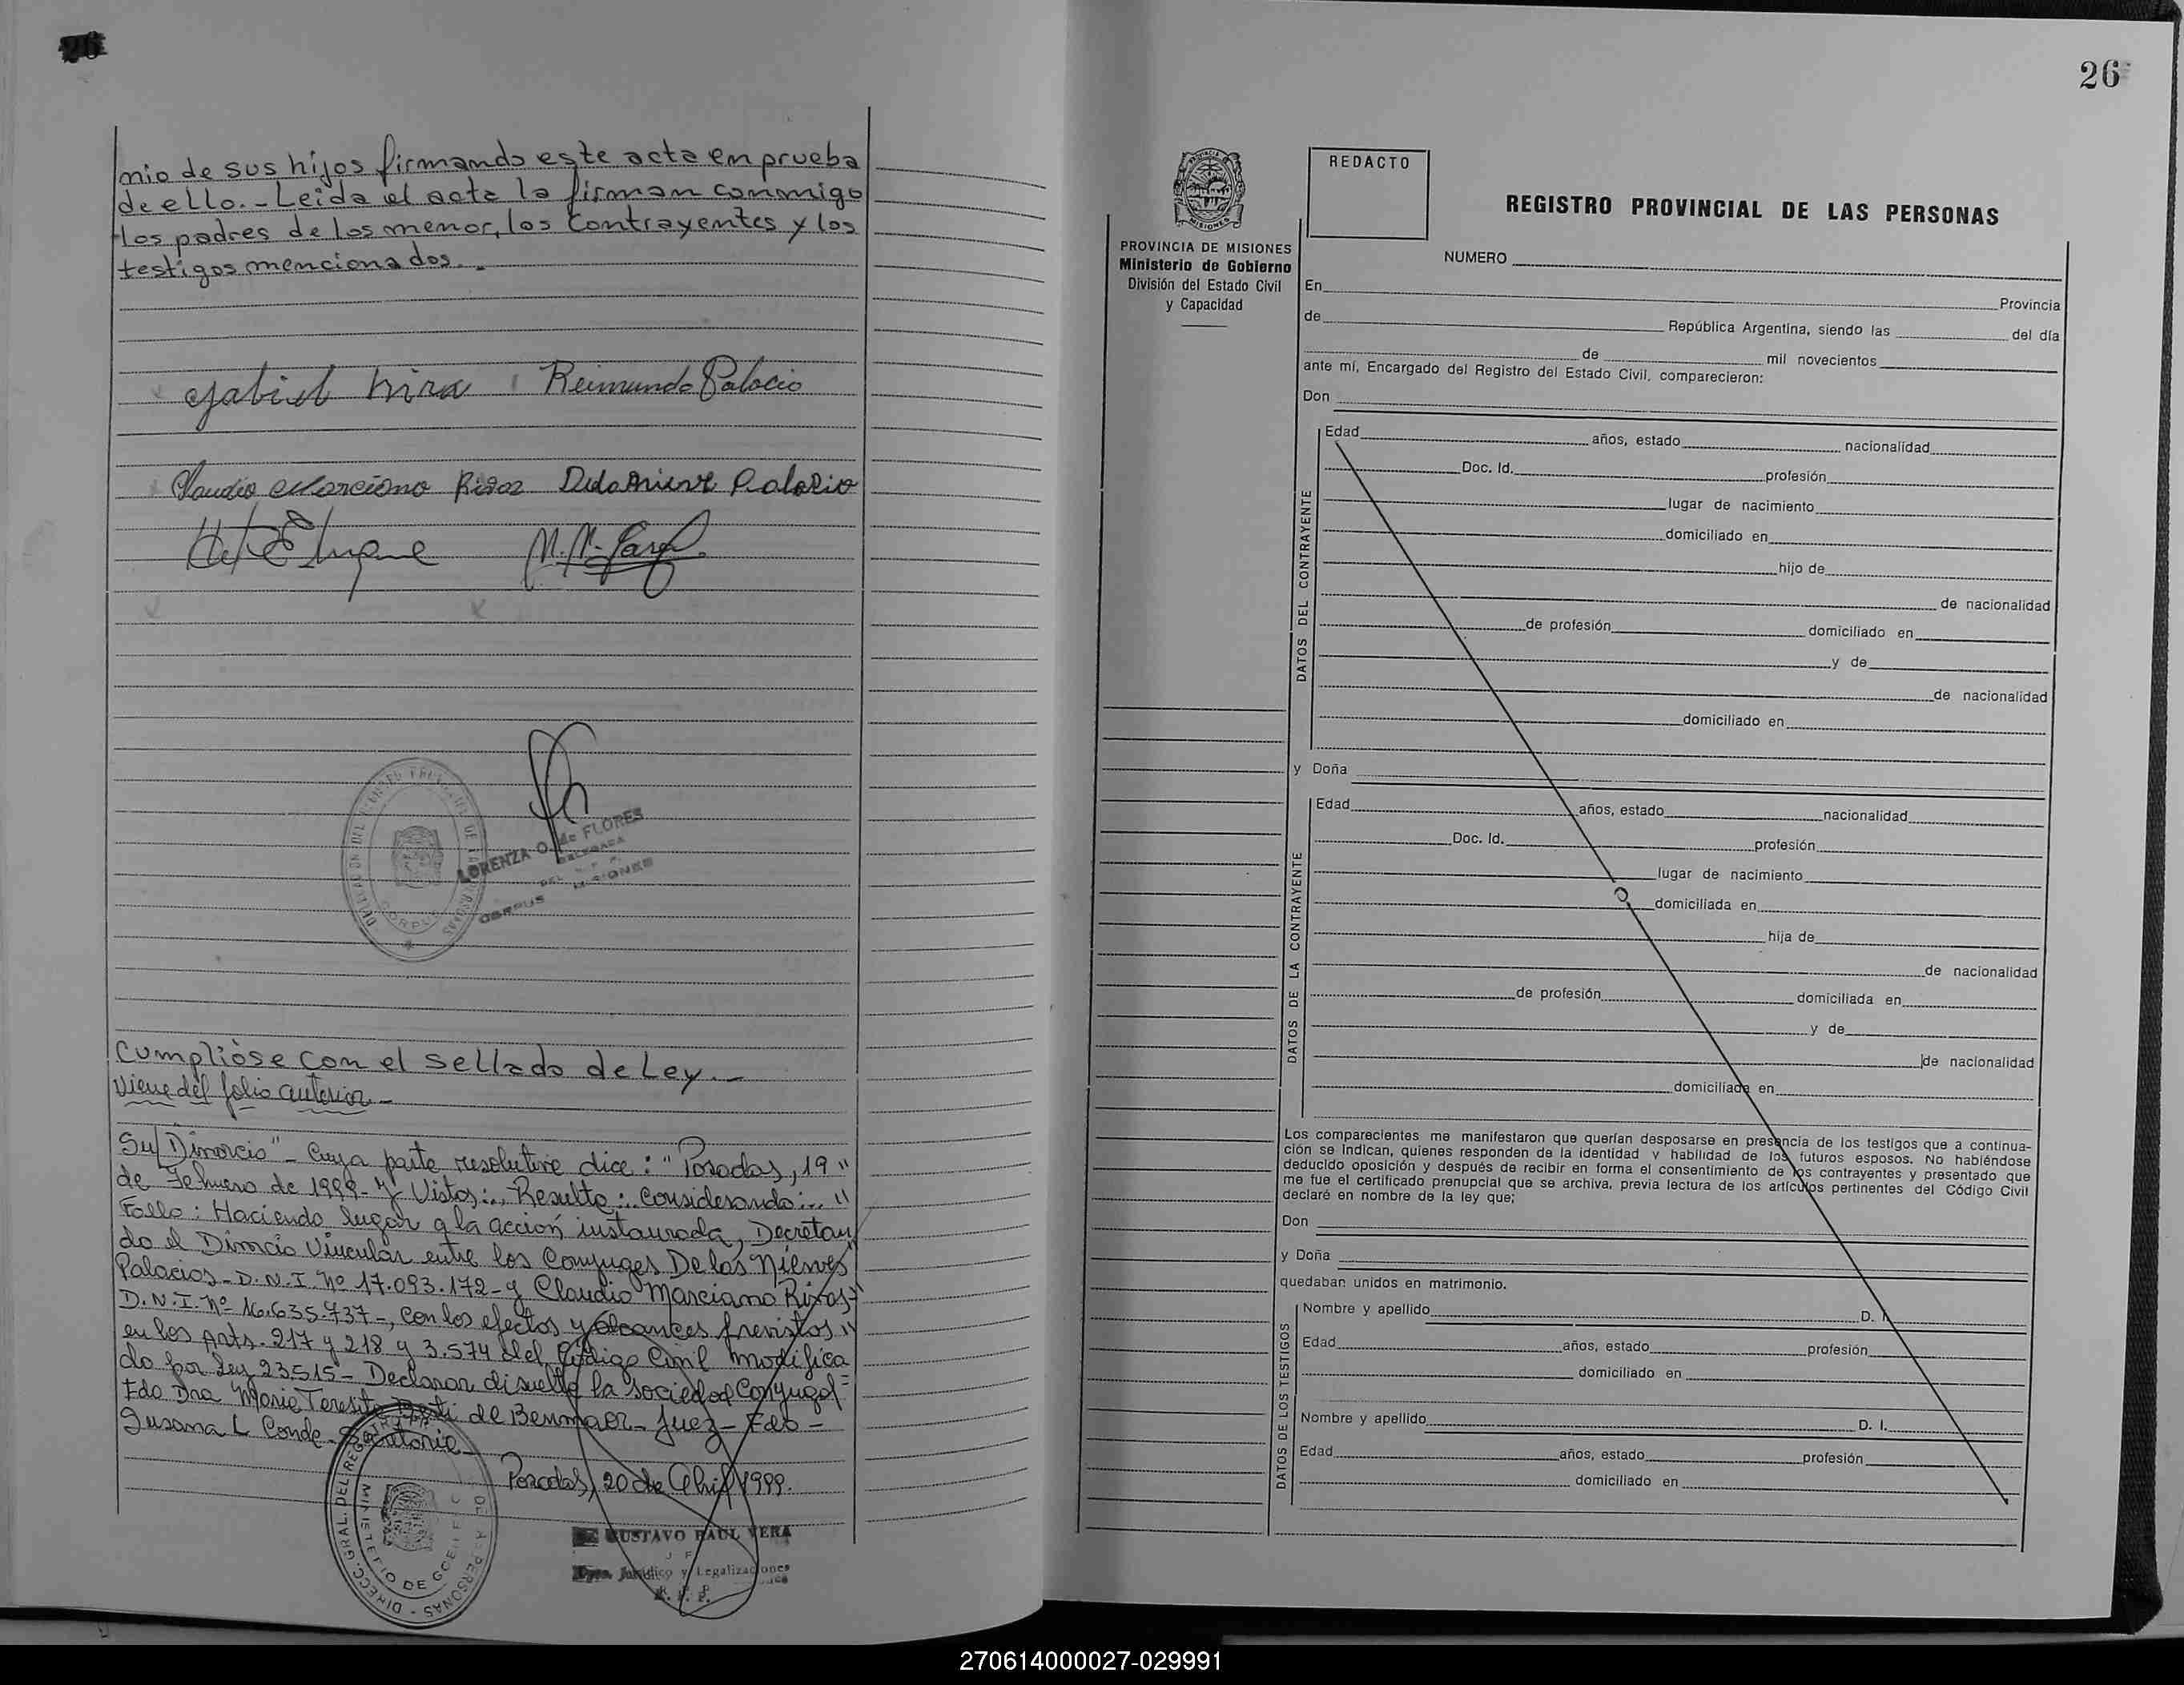 26
mio de sus hijos firmando este acta en prueba
de ello.- Leida el acta la firman conmigo
los padres de los menor, los contrayentes y los
testigos mencionados.-
Reimundo Palacio
Claudio Marciano
CORPUS
LORENZA O. de FLORES
DELEGADA
DEL R. P. P.
CORPUS MISIONES
Cumplióse con el sellado de Ley.-
Viene del folio anterior.-
S/ Divorcio"- Cuya parte resolutive dice: "Posadas, 19"
de Febrero de 1999.- y Vistos:.. Resulta:. Considerando:.. "
Fallo: Haciendo lugar a la acción instaurada, Decretan
do el Divorcio Vincular entre los Conyuges De las Nieves"
Palacios- D.N.I. Nº 17.093.172- y Claudio Marciano
D.N.I. Nº 16.635.737-, con los efectos y alcances previstos "
en los Arts. 217 y 218 y 3.574 del Código Civil modifica
do por Ley 23515- Declarar disuelta la sociedad Conyugal =
Fdo Dra Maria Teresita de - Juez- Fdo -
Susana L Conde- Secretaria-
Posadas, 20 de Abril 1999.
GUSTAVO RAUL VERA
Dpto. Jurídico y Legalizaciones
R. P. P.
DIRECC. GRAL. DEL REGISTRO DE LAS PERSONAS
MINISTERIO DE GOBIERNO
26
PROVINCIA DE MISIONES
Ministerio de Gobierno
División del Estado Civil
y Capacidad
REDACTO
REGISTRO PROVINCIAL DE LAS PERSONAS
NUMERO
En Provincia
de República Argentina, siendo las del día
de mil novecientos
ante mí, Encargado del Registro del Estado Civil, comparecieron:
Don
DATOS DEL CONTRAYENTE
Edad años, estado nacionalidad
Doc. Id. profesión
lugar de nacimiento
domiciliado en
hijo de
de nacionalidad
de profesión domiciliado en
y de
de nacionalidad
domiciliado en
y Doña
DATOS DE LA CONTRAYENTE
Edad años, estado nacionalidad
Doc. Id. profesión
lugar de nacimiento
domiciliada en
hija de
de nacionalidad
de profesión domiciliada en
y de
de nacionalidad
domiciliada en
Los comparecientes me manifestaron que querían desposarse en presencia de los testigos que a continua-
ción se indican, quienes responden de la identidad y habilidad de los futuros esposos. No habiéndose
deducido oposición y después de recibir en forma el consentimiento de los contrayentes y presentado que
me fue el certificado prenupcial que se archiva, previa lectura de los artículos pertinentes del Código Civil
declaré en nombre de la ley que;
Don
y Doña
quedaban unidos en matrimonio.
DATOS DE LOS TESTIGOS
Nombre y apellido D. I.
Edad años, estado profesión
domiciliado en
Nombre y apellido D. I.
Edad años, estado profesión
domiciliado en
270614000027-029991